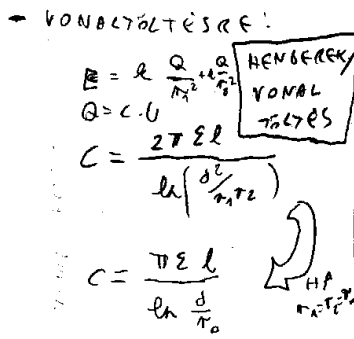 - VONALTÖLTÉSRE:
E = k Q/r₁² + k Q/r₂²
Q = C.U
HENGEREK/
VONAL
TÖLTÉS
C = 2πεl / ln(d²/r₁r₂)
C = πεl / ln d/r₀
HA
r₁=r₂=r₀